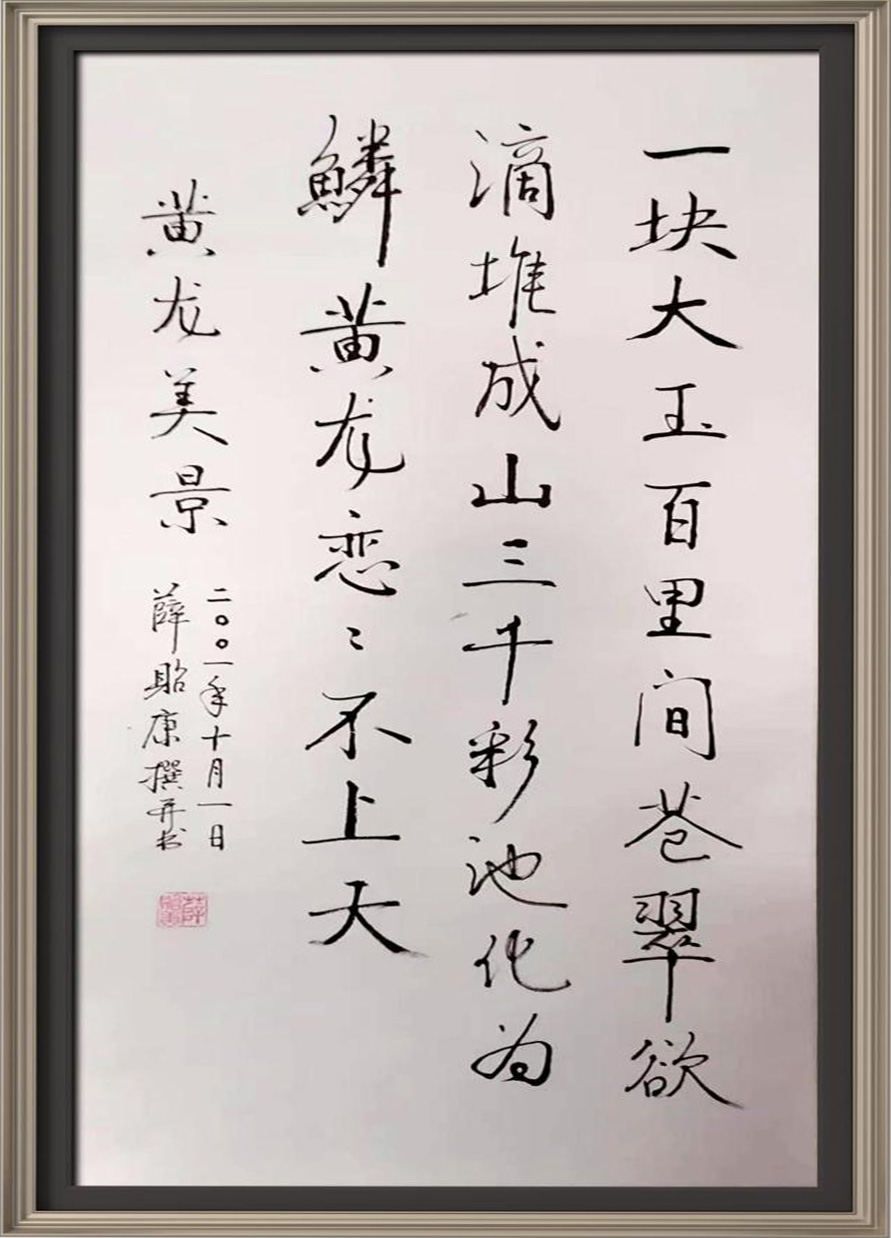 一块大玉百里间苍翠欲
滴堆成山三千彩池化为
鳞黄龙恋〻不上天
黄龙美景
二〇〇一年十月一日
薛贻康撰并书